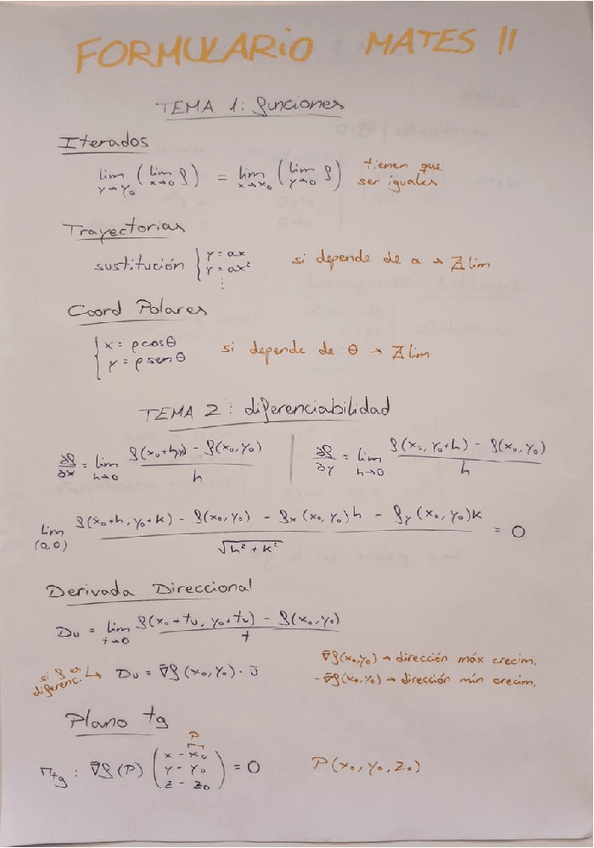 FORMULARIO MATES II
TEMA 1: funciones
Iterados
lim y→y₀ (lim x→0 f) = lim x→x₀ (lim y→0 f) tienen que ser iguales
Trayectorias
sustitución { y = ax
y = ax²
⋮
si depende de a → ∄ lim
Coord Polares
{ x = ρcosθ
y = ρsenθ
si depende de θ → ∄ lim
TEMA 2: diferenciabilidad
∂f/∂x = lim h→0 (f(x₀+h, y₀) - f(x₀, y₀))/h | ∂f/∂y = lim h→0 (f(x₀, y₀+h) - f(x₀, y₀))/h
lim (0,0) (f(x₀+h, y₀+k) - f(x₀, y₀) - fx(x₀, y₀)h - fy(x₀, y₀)k)/√(h² + k²) = 0
Derivada Direccional
Du = lim t→0 (f(x₀+tu, y₀+tv) - f(x₀, y₀))/t
si f es diferenc. → Du = ∇f(x₀, y₀) · ū
∇f(x₀, y₀) → dirección máx crecim.
-∇f(x₀, y₀) → dirección mín crecim.
Plano tg
P
πtg : ∇f(P) (x - x₀
y - y₀
z - z₀) = 0
P(x₀, y₀, z₀)